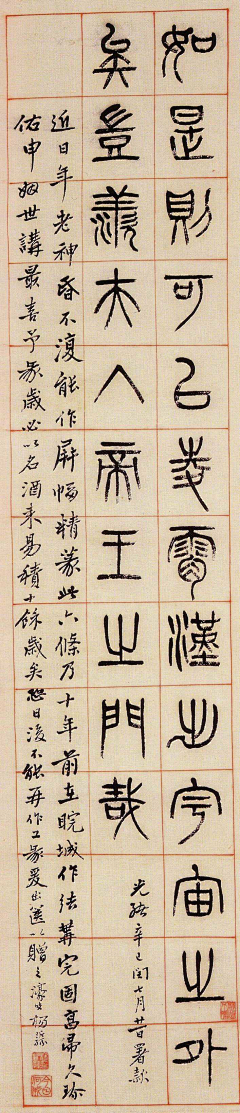 如是則可㠯夌霄漢出宇宙之外
矣豈羨夫入帝王之門哉
光緒辛巳閏七月署款
近日年老神昏不復能作屏幅精篆此六條乃十年前在皖城作結篝完固帚久珍
佑申姻世講最喜予篆歲必以名酒來易積十餘歲矣恐日後不能再作工篆爰出匧以贈之濠叟楊沂孫